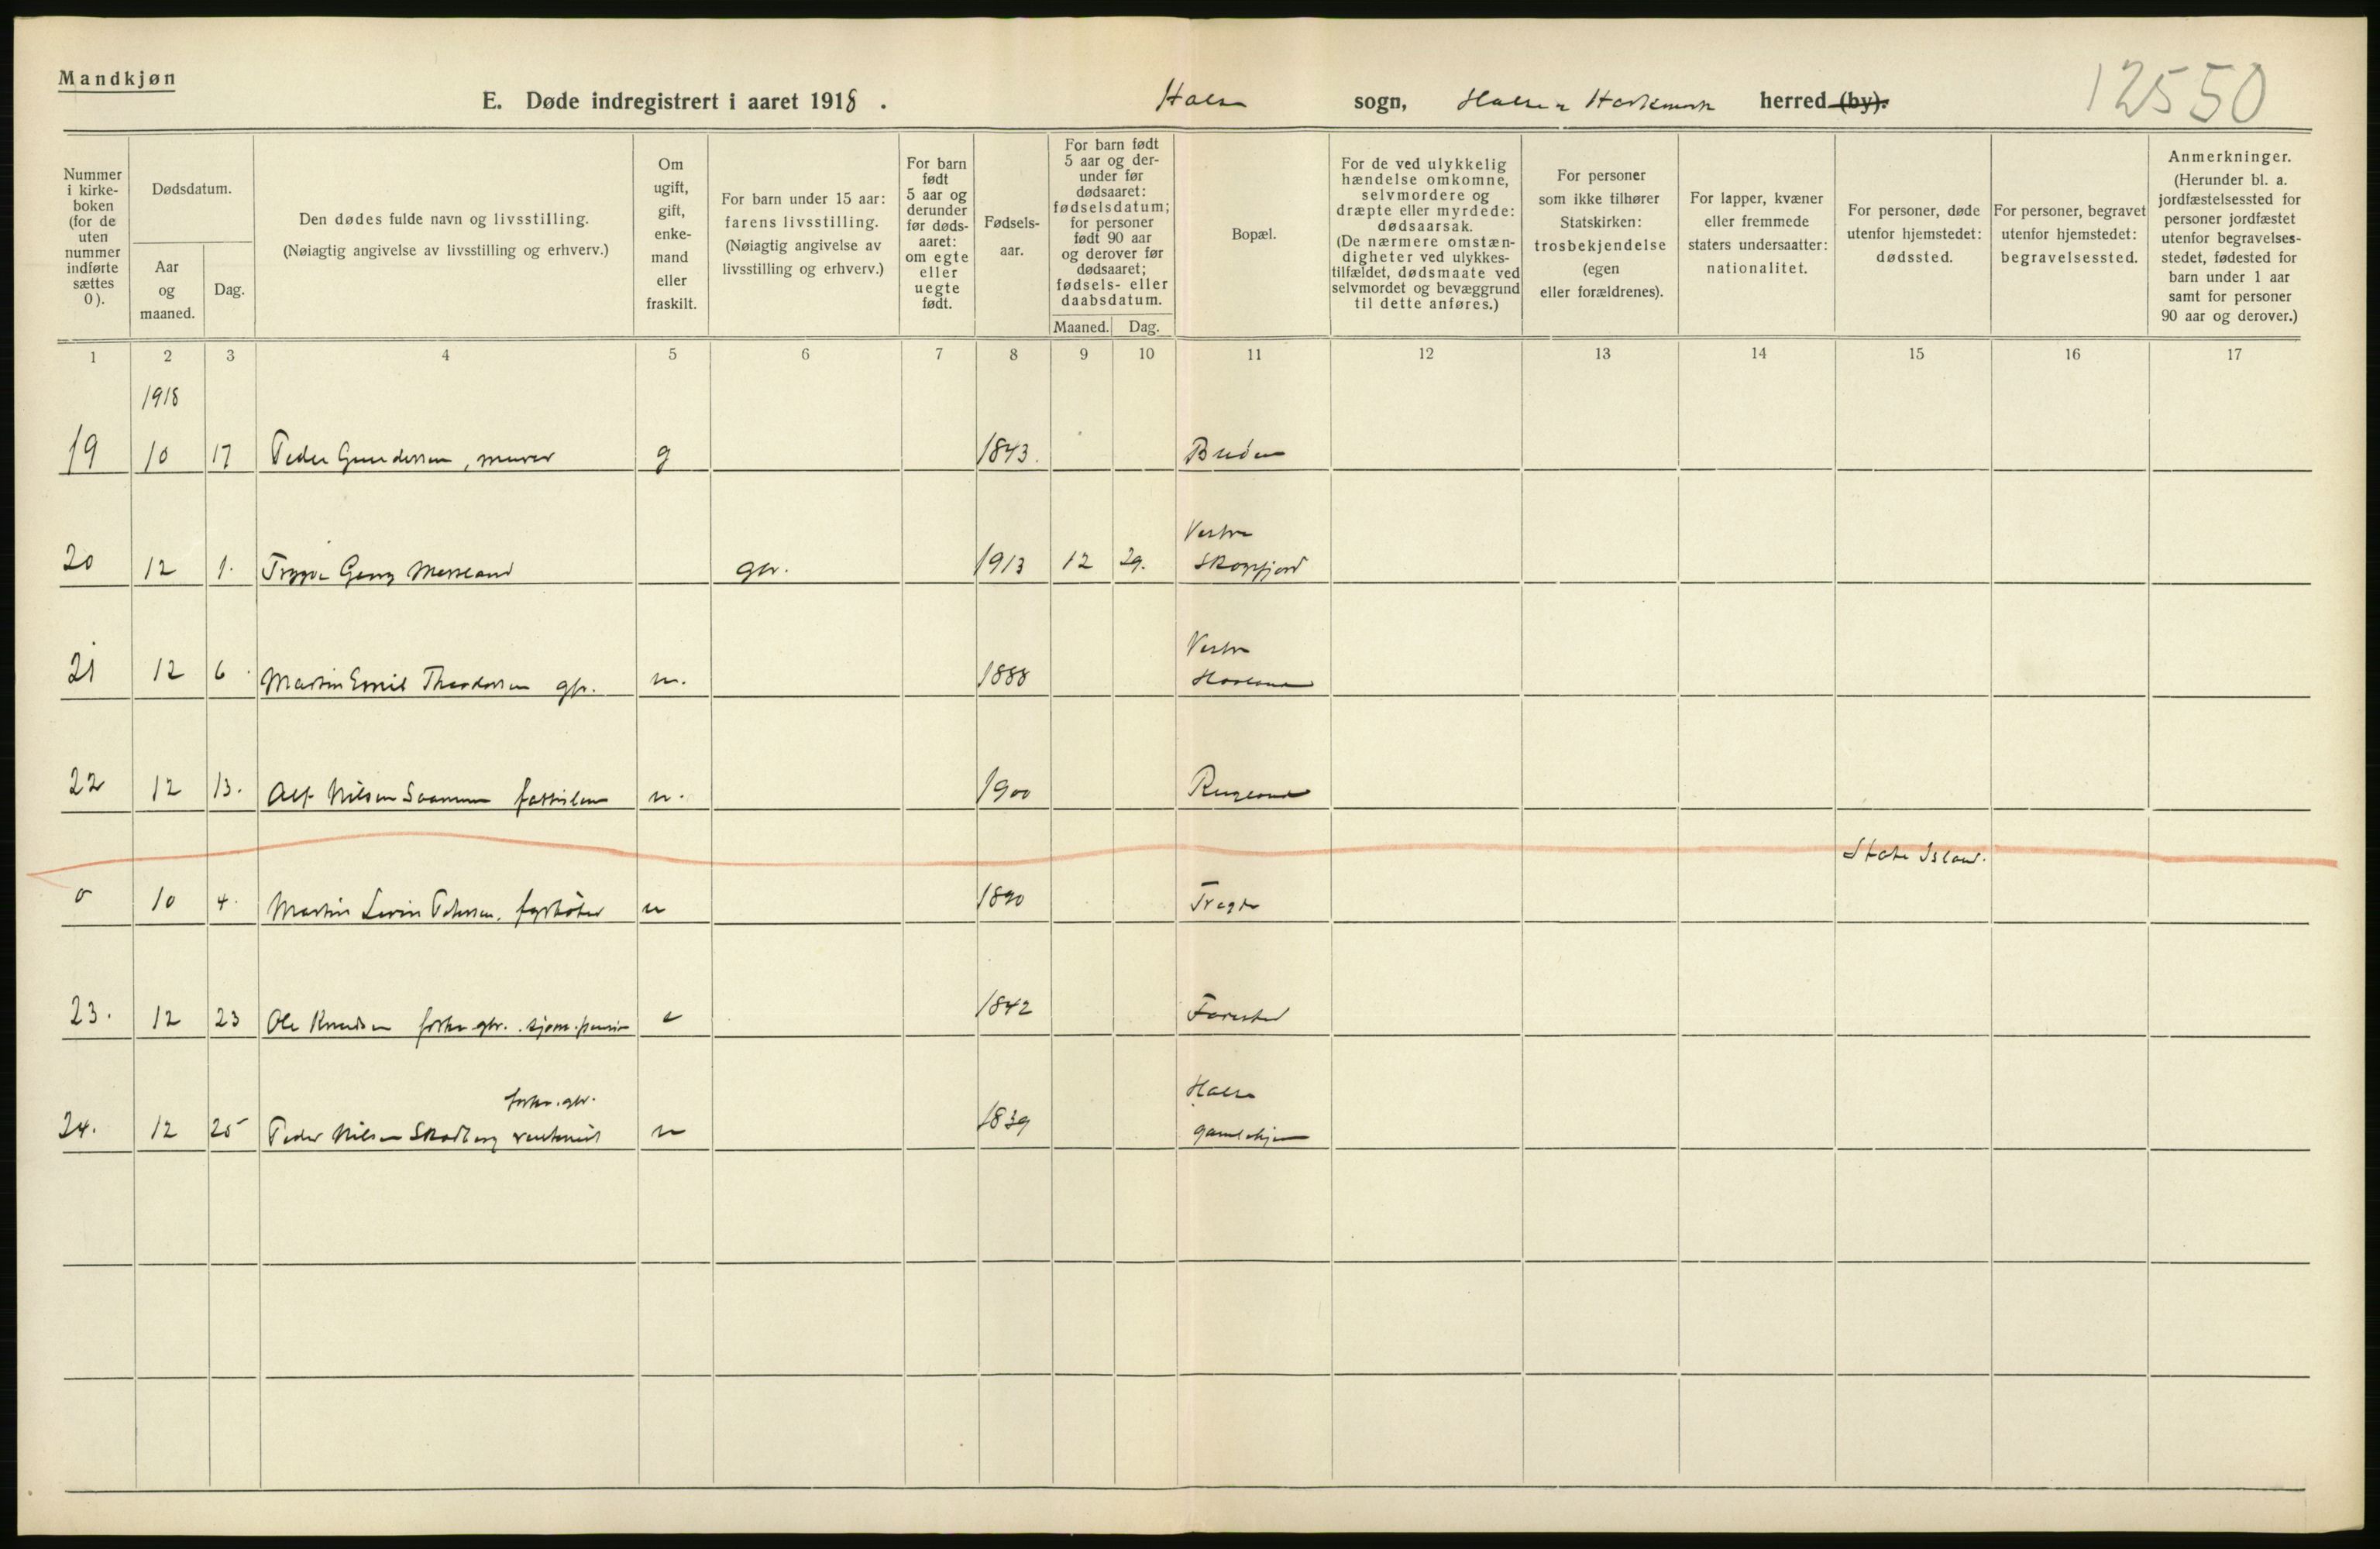 Mandkjøn
E. Døde indregistrert i aaret 1918. Halse sogn, Halse & Harkmark herred (by).
12550
Nummer i kirkeboken (for de uten nummer indførte sættes 0).
Dødsdatum.
Aar og maaned.
Dag.
Den dødes fulde navn og livsstilling.
(Nøiagtig angivelse av livsstilling og erhverv.)
Om ugift, gift, enkemand eller fraskilt.
For barn under 15 aar: farens livsstilling.
(Nøiagtig angivelse av livsstilling og erhverv.)
For barn født 5 aar og derunder før dødsaaret: om egte eller uegte født.
Fødselsaar.
For barn født 5 aar og derunder før dødsaaret: fødselsdatum; for personer født 90 aar og derover før dødsaaret; fødsels- eller daabsdatum.
Maaned. Dag.
Bopæl.
For de ved ulykkelig hændelse omkomne, selvmordere og dræpte eller myrdede: dødsaarsak.
(De nærmere omstændigheter ved ulykkestilfældet, dødsmaate ved selvmordet og bevæggrund til dette anføres.)
For personer som ikke tilhører Statskirken: trosbekjendelse (egen eller forældrenes).
For lapper, kvæner eller fremmede staters undersaatter: nationalitet.
For personer, døde utenfor hjemstedet: dødssted.
For personer, begravet utenfor hjemstedet: begravelsessted.
Anmerkninger.
(Herunder bl. a. jordfæstelsessted for personer jordfæstet utenfor begravelsesstedet, fødested for barn under 1 aar samt for personer 90 aar og derover.)
1 2 3 4 5 6 7 8 9 10 11 12 13 14 15 16 17
1918
19 10 17 Peder Gundersen, murer g 1843.
Vestre
20 12 1. Trygve Georg Messeland gbr. 1913 12 29. Skogsfjord
Vestre
21 12 6. Martin Emil Theodorsen gbr. u. 1888
22 12 13. Alf Nilsen u. 1900
State Island.
0 10 4. Martin Petersen, fyrbøter u 1890 Tregde
23. 12 23 Ole Knudsen forhv. gbr. sjøm. pension e 1842 Farestad
forhv. gbr. Halse
24. 12 25 Peder Nilsen Skadberg u 1839 gamlehjem